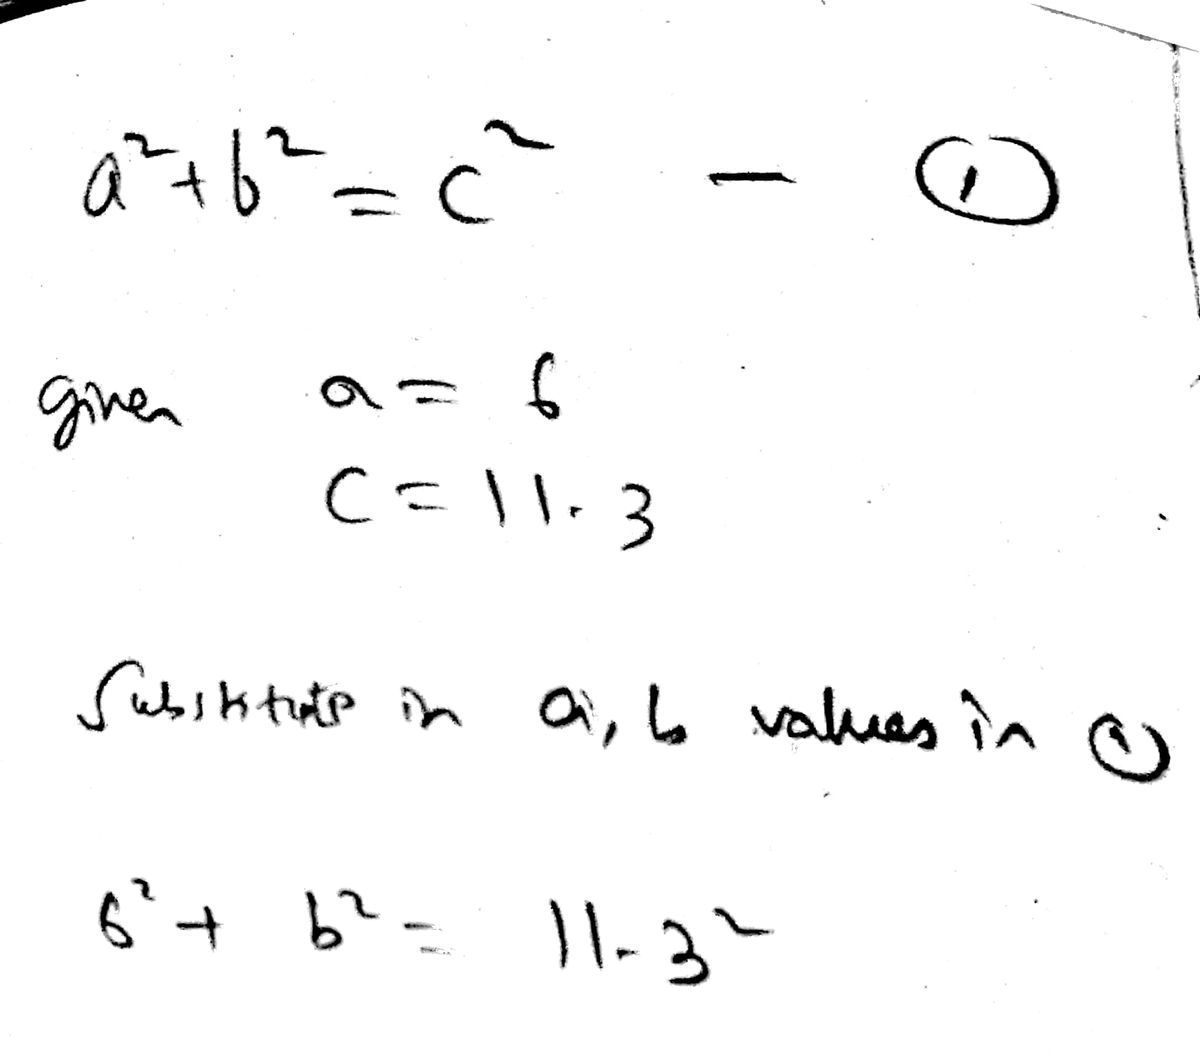 a²+b²=c² — ①
given a= 6
c=11.3
Substitute in a, b values in ①
6²+ b²= 11.3²